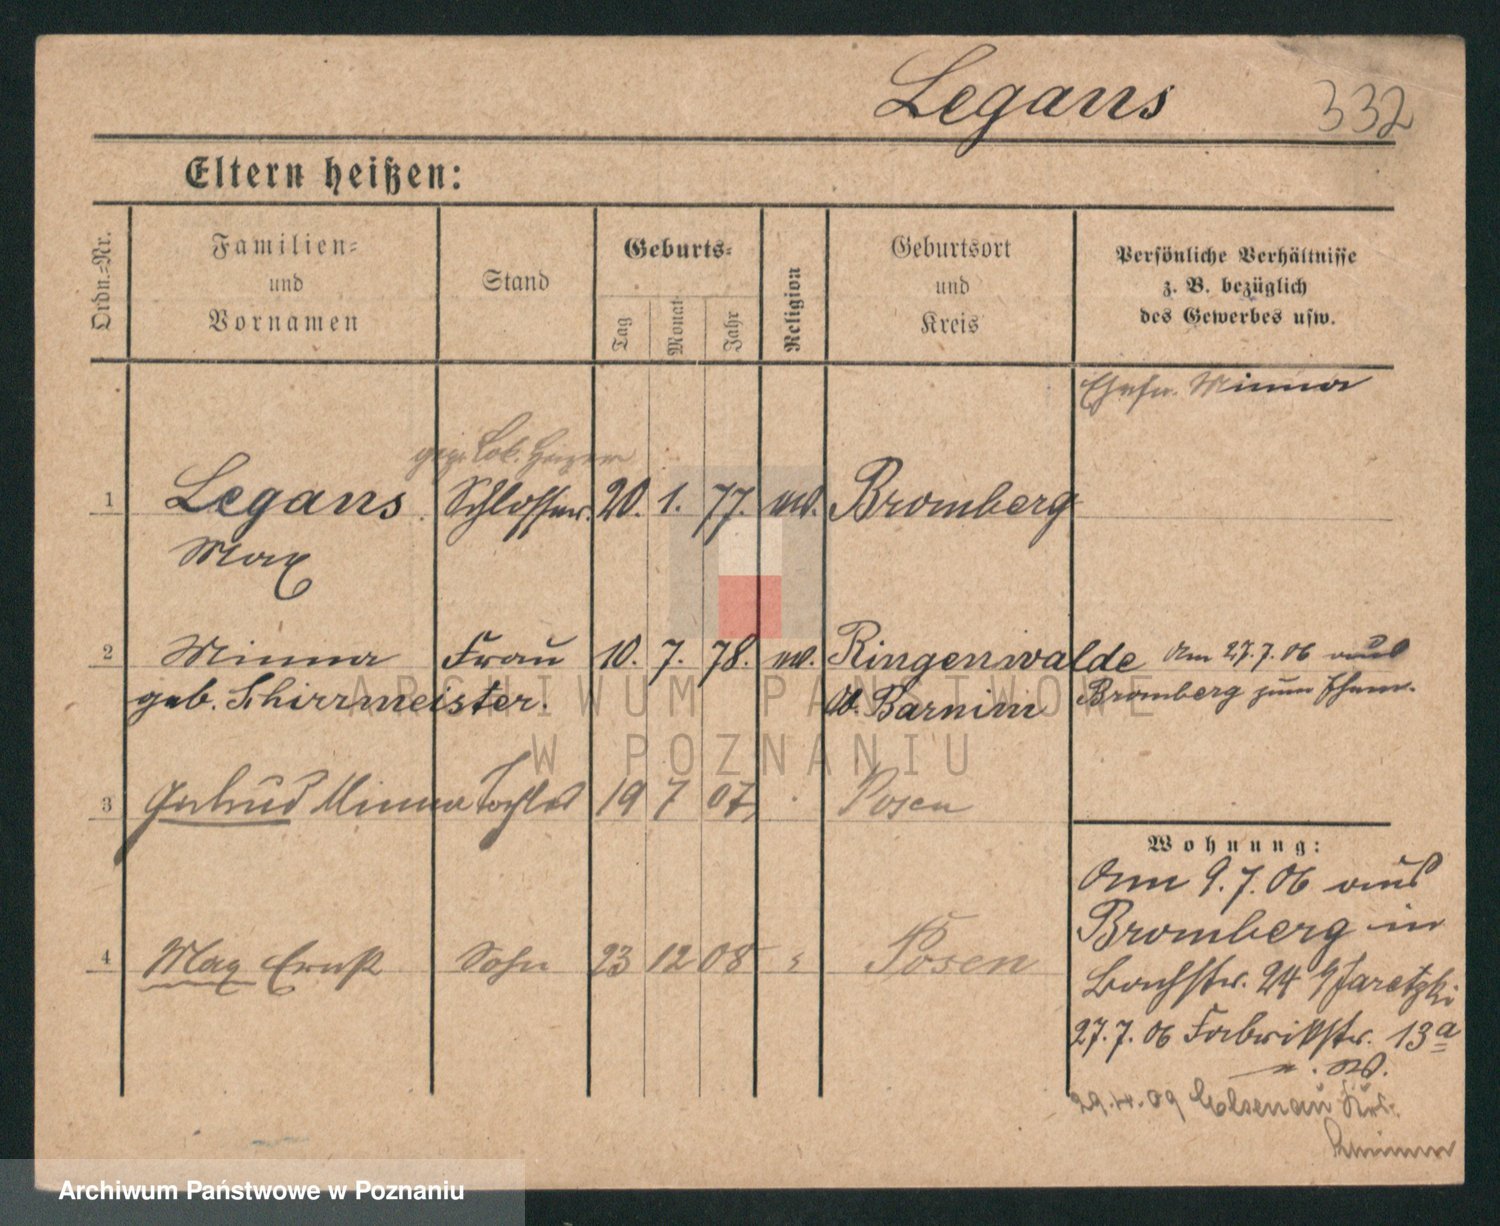 Legans 332
Eltern heißen:
Ordn.=Nr.
Familien=
und
Vornamen
Stand
Geburts=
Tag
Monat
Jahr
Religion
Geburtsort
und
Kreis
Persönliche Verhältnisse
z. B. bezüglich
des Gewerbes usw.
Ehefr. Minna
Lok. Heizer
1 Legans Schlosser 20. 1. 77. ev. Bromberg
Max
2 Minna Frau 10. 7. 78. ev. Ringenwalde am 27.7.06 aus
geb. Schirrmeister. O. Barnim Bromberg zum Ehem.
3 Gertrud Minna Tochter 19 7 07 Posen
4 Max Ernst Sohn 23 12 08 Posen
Wohnung:
Am 9.7.06 aus
Bromberg in
Bachstr. 24 b/Jaretzki
27.7.06 Fabrikstr. 13a
29.4.09 Elsenau Krs.
ARCHIWUM PAŃSTWOWE
W POZNANIU
Archiwum Państwowe w Poznaniu